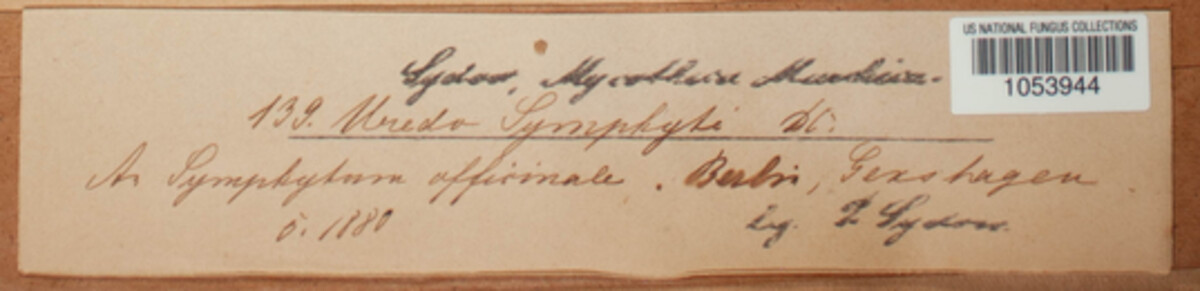 US NATIONAL FUNGUS COLLECTIONS
1053944
Sydow, Mycotheca Marchica.
139. Uredo Symphyti DC.
An Symphytum officinale. Berlin, Genshagen
5. 1880
leg. P. Sydow.